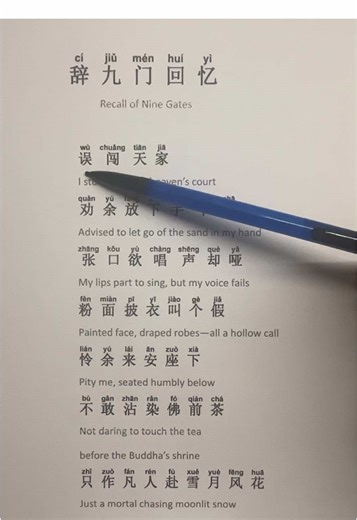 cí jiǔ mén huí yì
辞九门回忆
Recall of Nine Gates
wù chuǎng tiān jiā
误闯天家
I heaven's court
quàn yú fàng
劝余放下手
Advised to let go of the sand in my hand
zhāng kǒu yù chàng shēng què yǎ
张口欲唱声却哑
My lips part to sing, but my voice fails
fěn miàn pī yī jiào gè jiǎ
粉面披衣叫个假
Painted face, draped robes—all a hollow call
lián yú lái ān zuò xià
怜余来安座下
Pity me, seated humbly below
bù gǎn zhān rǎn fó qián chá
不敢沾染佛前茶
Not daring to touch the tea
before the Buddha's shrine
zhǐ zuò fán rén fù xuě yuè fēng huā
只作凡人赴雪月风花
Just a mortal chasing moonlit snow